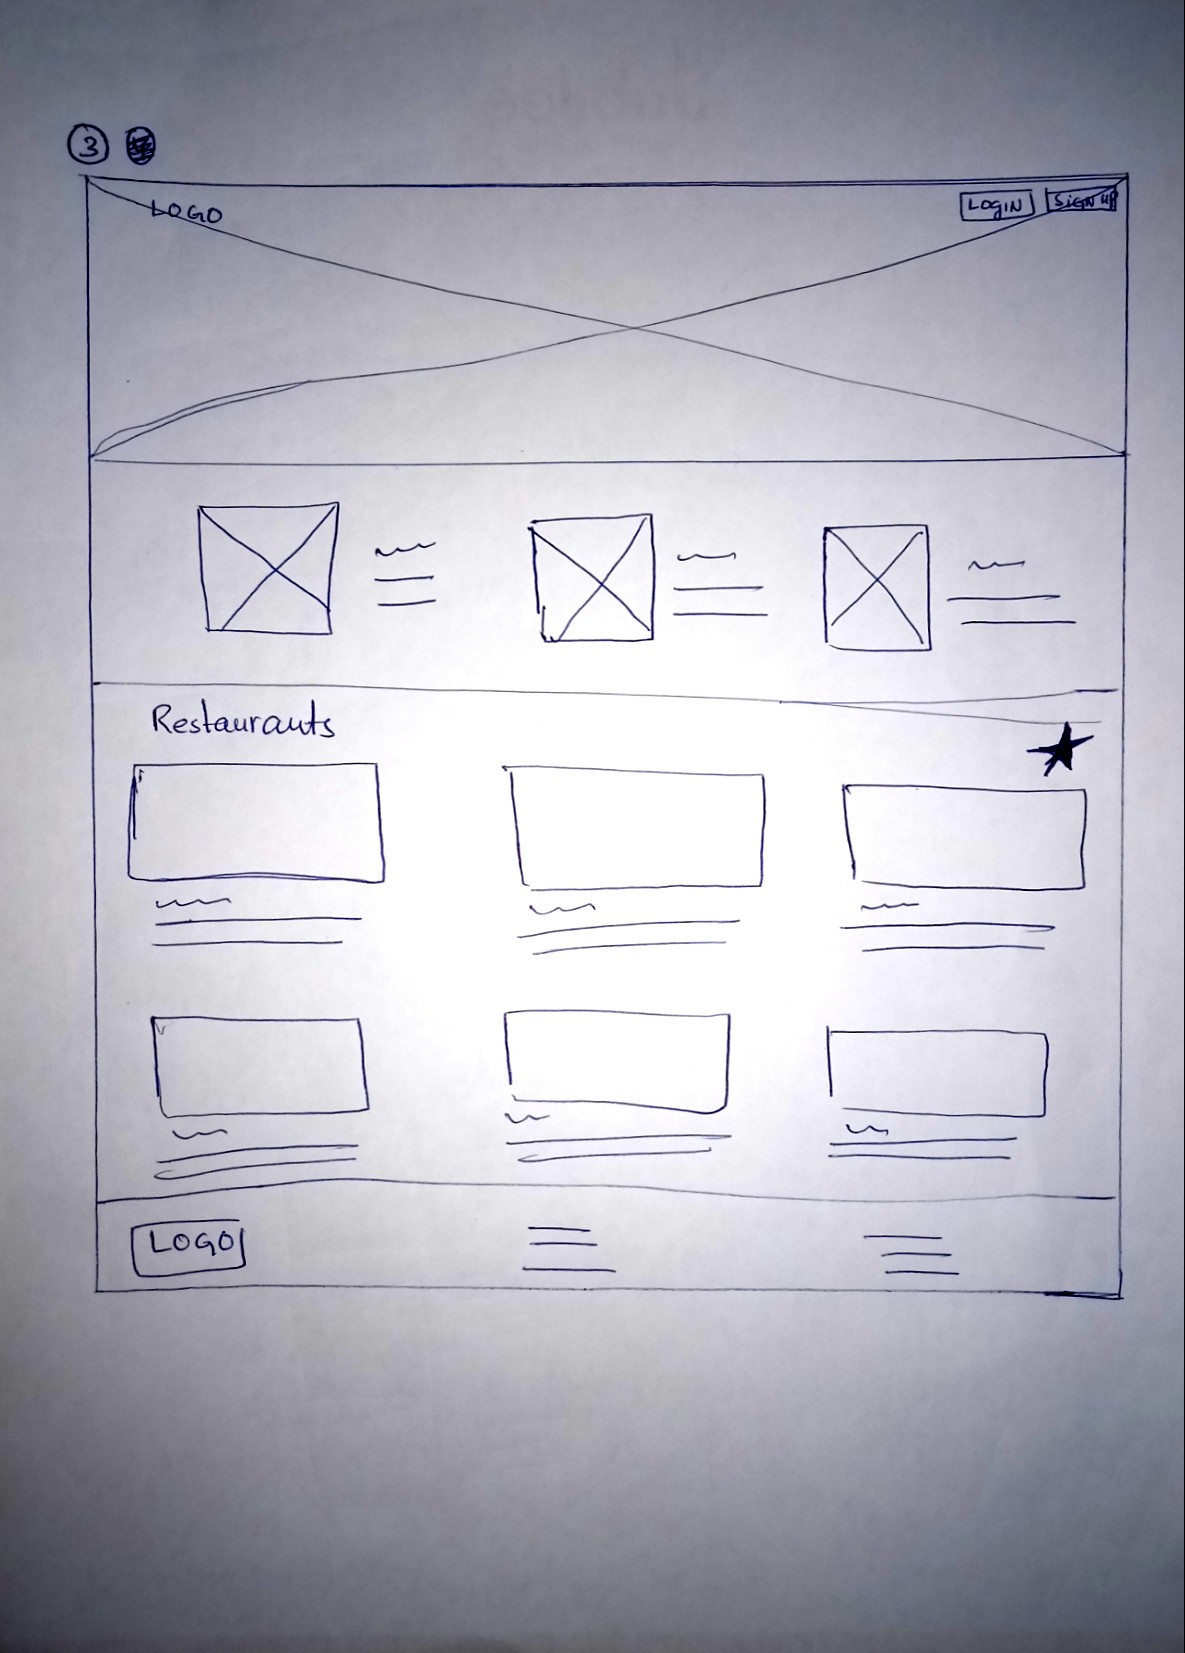 3
LOGO
LOGIN SIGN UP
Restaurants
LOGO